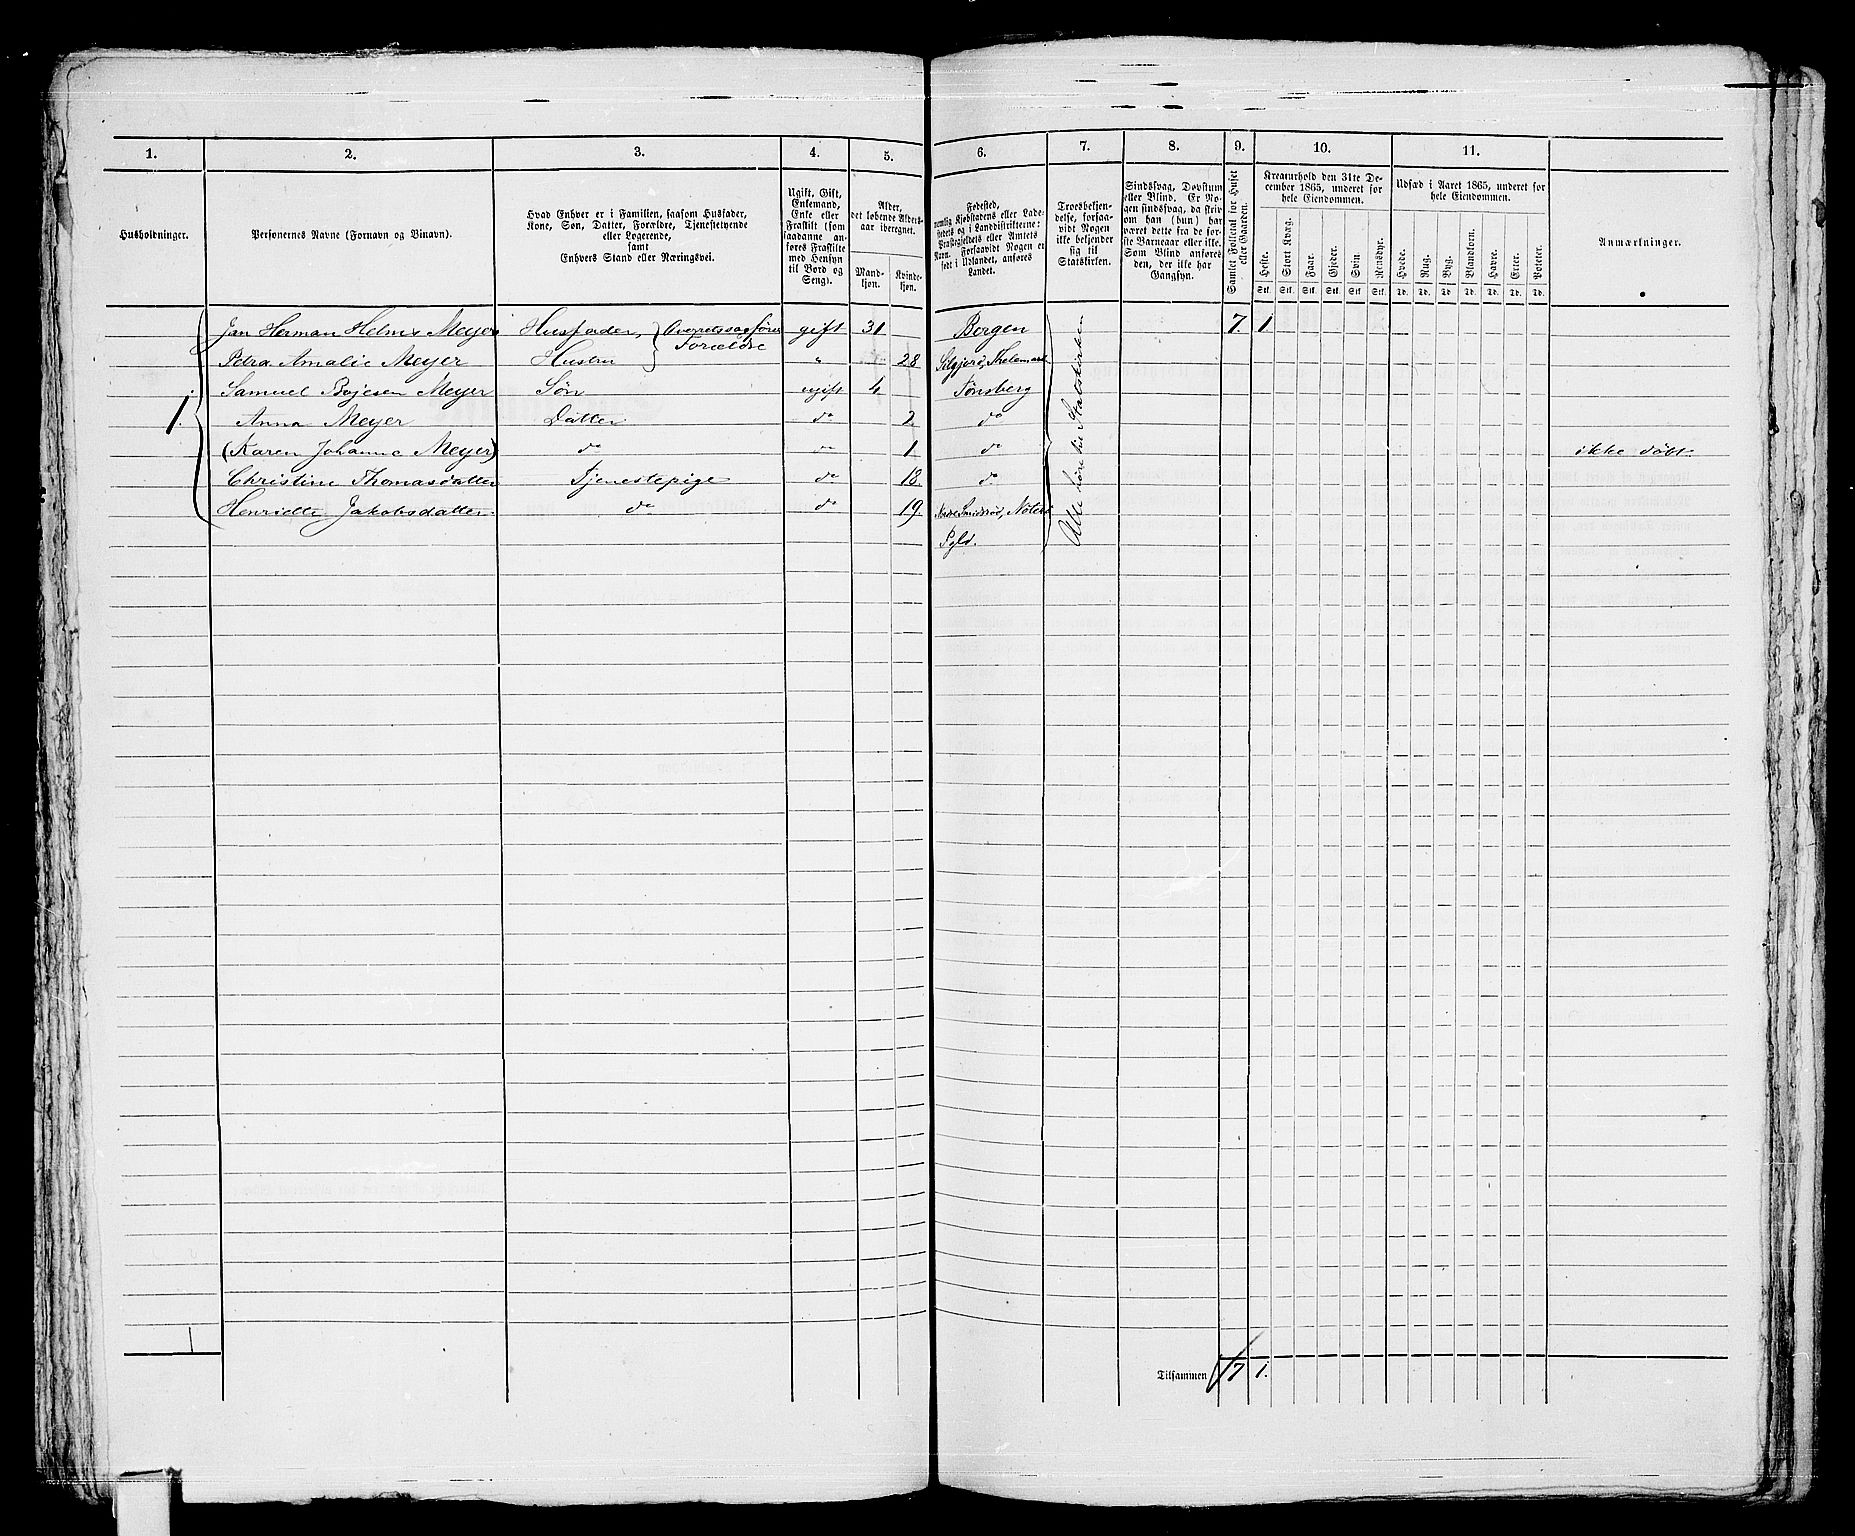 1. 2. 3. 4. 5. 6. 7. 8. 9. 10. 11.
Husholdninger.
Personernes Navne (Fornavn og Binavn).
Hvad Enhver er i Familien, saasom Husfader,
Kone, Søn, Datter, Forældre, Tjenestetyende
eller Logerende,
samt
Enhvers Stand eller Næringsvei.
Ugift, Gift,
Enkemand,
Enke eller
Fraskilt (som
saadanne an-
føres Fraskilte
med Hensyn
til Bord og
Seng).
Alder,
det løbende Alders-
aar iberegnet.
Mand-
kjøn.
Kvinde-
kjøn.
Fødested,
nemlig Kjøbstadens eller Lade-
stedets og i Landdistrikterne:
Præstegjeldets eller Amtets
Navn. Forsaavidt Nogen er
født i Udlandet, anføres
Landet.
Troesbekjen-
delse, forsaa-
vidt Nogen
ikke bekjender
sig til
Statskirken.
Sindssvag, Døvstum
eller Blind. Er No-
gen sindssvag, da skriv
om han (hun) har
været dette fra de før-
ste Barneaar eller ikke.
Som Blind anføres
den, der ikke har
Gangsyn.
Samlet Folketal for Huset
eller Gaarden.
Kreaturhold den 31te De-
cember 1865, underet for
hele Eiendommen.
Heste. Stort Kvæg. Faar. Gjeder. Svin. Rensdyr.
Stk. Stk. Stk. Stk. Stk. Stk.
Udsæd i Aaret 1865, underet for
hele Eiendommen.
Hvede. Rug. Byg. Blandkorn. Havre. Erter. Poteter.
Td. Td. Td. Td. Td. Td. Td.
Anmærkninger.
Jan Herman Helms Meyer Husfader, Overretssagfører gift 31 Bergen 7. 1
Forældre
Petra Amalie Meyer Hustru " 28 Silgjord, Thelemark
Samuel Bojesen Meyer Søn ugift 4 Tønsberg
1. Anna Meyer Datter do 2. do
(Karen Johanne Meyer) do do 1 do ikke døbt.
Christine Thomasdatter Tjenestepige do 18. do
Henriette Jakobsdatter do do 19. Smidsrød, Nøterø
Pgld.
Alle høre til Statskirken
1
Tilsammen 7 1.